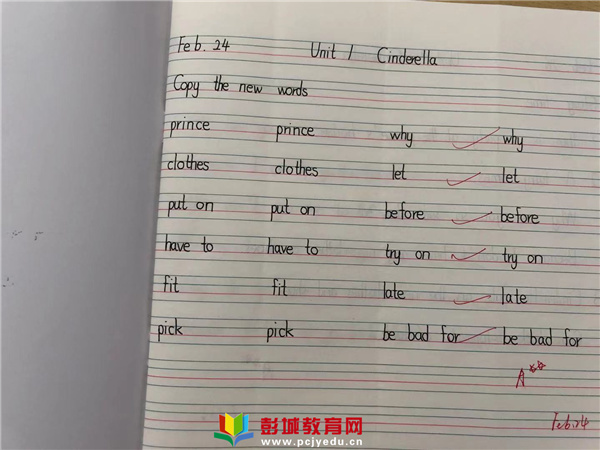 Feb. 24 Unit 1 Cinderella
Copy the new words
prince prince why why
clothes clothes let let
put on put on before before
have to have to try on try on
fit fit late late
pick pick be bad for be bad for
A
Feb.24
彭城教育网
www.pcjyedu.cn